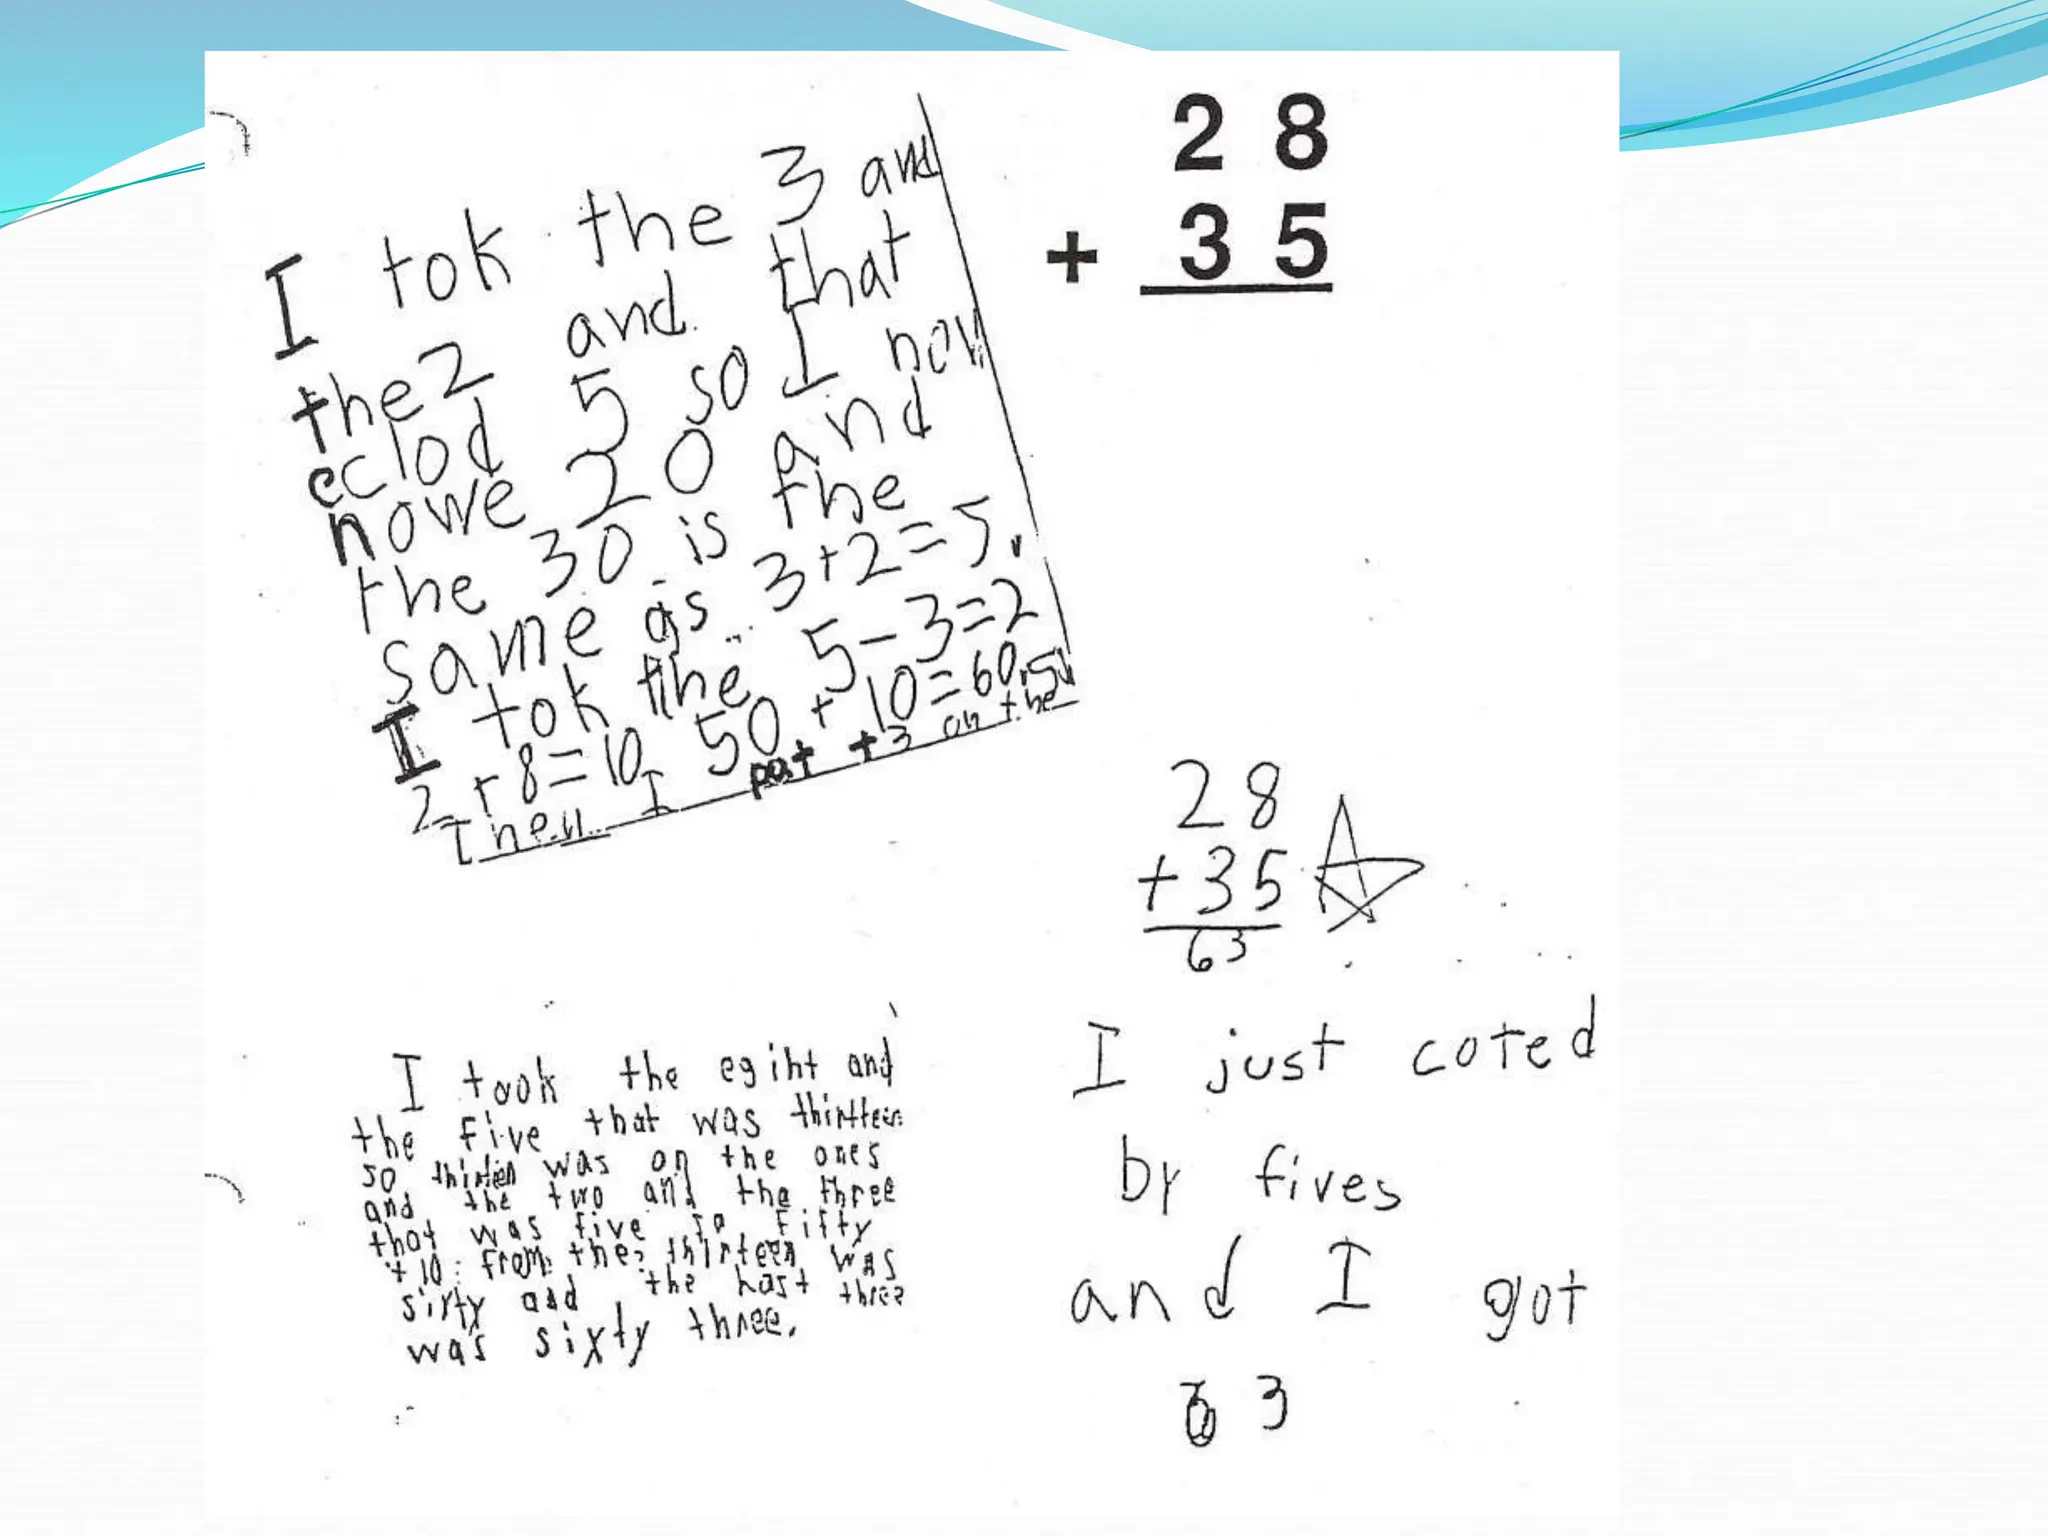 2 8
+ 3 5
I tok the 3 and
the 2 and that
eclod 5 so I now
nowe 20 and
the 30 is the
same as 3+2=5.
I tok the 5-3=2
2+8=10 50+10=60.
Then I pat +3 on the
28
+35
63
I took the egiht and
the five that was thirteen
so thirteen was on the ones
and the two and the three
that was five so fifty
+10 from the thirteen was
sixty and the last three
was sixty three.
I just coted
by fives
and I got
63